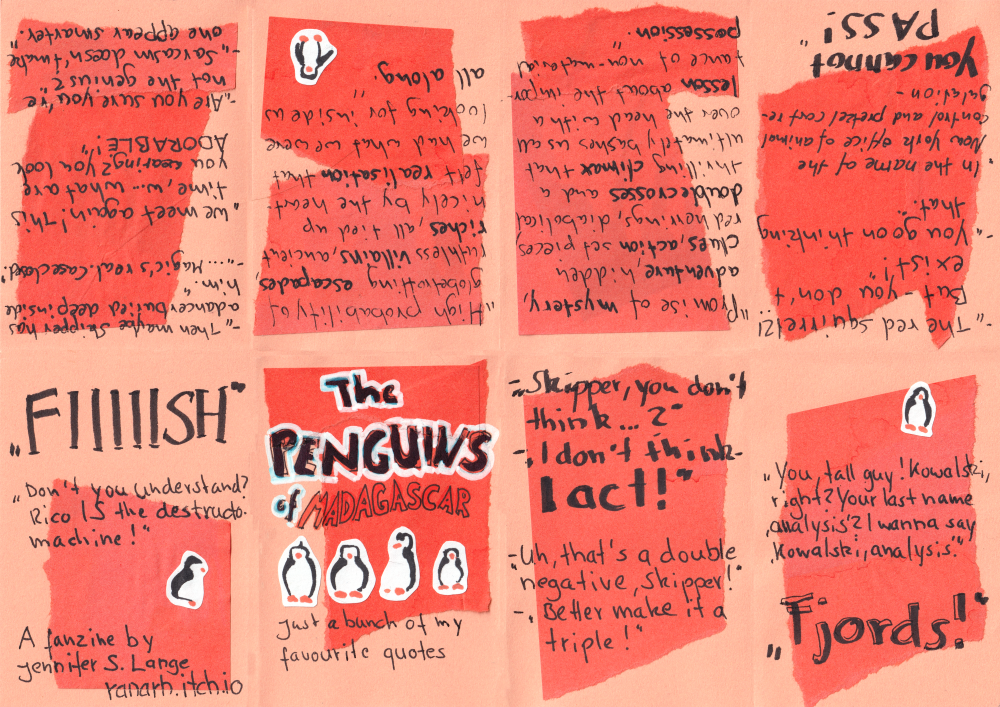 The
PENGUINS
of MADAGASCAR
Just a bunch of my
favourite quotes
-„Skipper, you don't
think...?"
-„I don't think-
I act!"
-„Uh, that's a double
negative, Skipper!"
-„Better make it a
triple!"
„You, tall guy! Kowalski,
right? Your last name
‚analysis'? I wanna say
‚Kowalski, analysis.'"
„Fjords!"
-„The red squirrel?! ...
But - you - don't
exist!"
-„You go on thinking
that."
„In the name of the
New York office of animal
control and pretzel cart re-
gulation -
You cannot
PASS!"
„Promise of mystery,
adventure hidden
clues, action set pieces
red herrings, diabolical
doublecrosses and a
thrilling climax that
ultimately bashes us all
over the head with a
lesson about the impor-
tance of non-material
possession."
„High probability of
globetrotting escapades,
ruthless villains, ancient
riches, all tied up
nicely by the heart
felt realisation that
we had what we were
looking for inside us
all along."
-„Then maybe Skipper has
a dancer buried deep inside
him."
-„... Magic's real. Case closed."
„We meet again! This
time, ... what are
you wearing? You look
ADORABLE!"
-„Are you sure you're
not the genius?"
-„Sarcasm doesn't make
one appear smarter."
„FIIIIISH"
„Don't you understand?
Rico IS the destructo-
machine!"
A fanzine by
Jennifer S. Lange
ranarh.itch.io